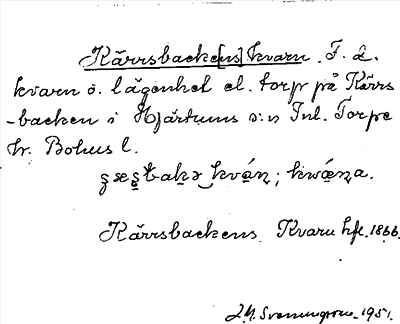 Kärrsbacke[ns] kvarn. F. d.
kvarn o. lägenhet el. torp på Kärrs
-backen i Hjärtums s:n Inl. Torpe
hr. Bohus l.
kvǽṇ; kwǽṇa.
Kärrsbackens Kvarn hfl. 1866.
J.H. Svenungsson. 1951.